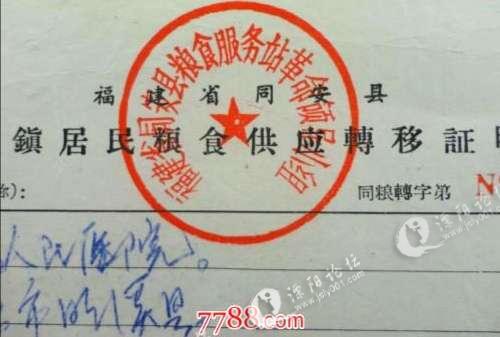 福建省同安县粮食服务站革命领导小组
福建省同安县
鎮居民粮食供应轉移証
): 同粮轉字第 N
人民医院。
市
溧阳论坛
www.jsly001.com
溧阳论坛
www.jsly001.com
7788.com